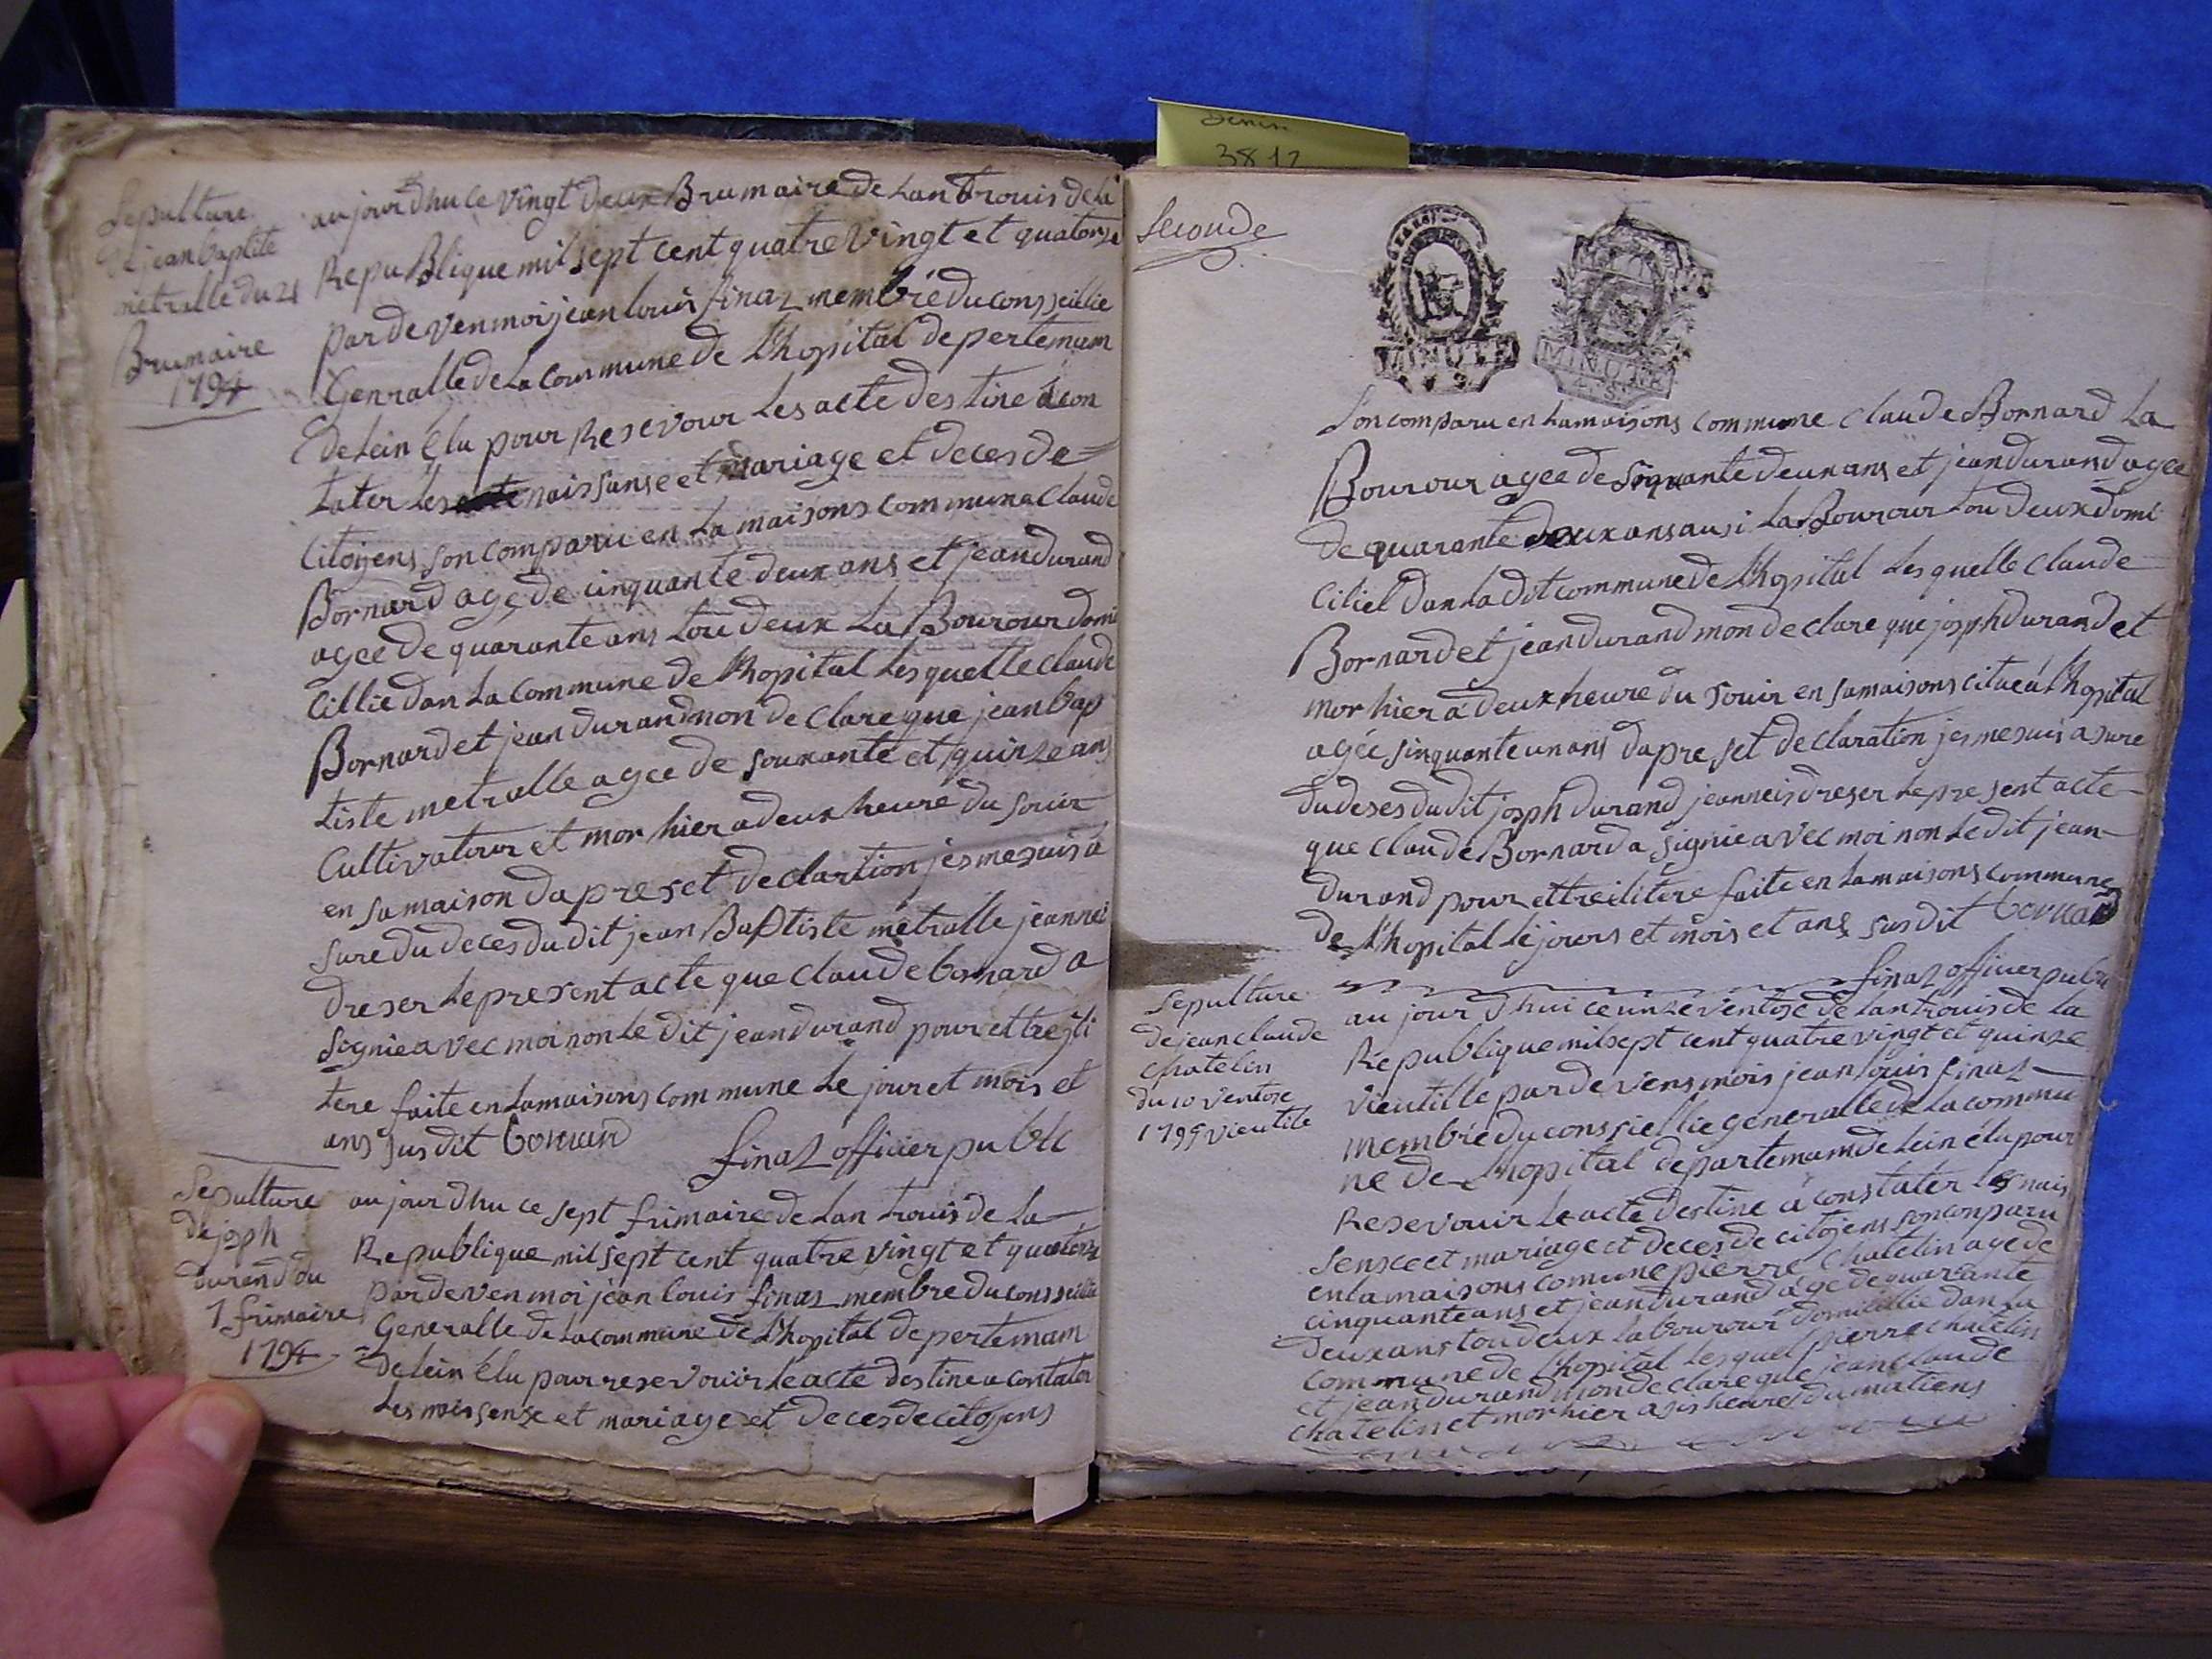 Sepulture
de jean baptite
metralle du 21
Brumaire
1794
aujourdhu ce vingt deux Brumaire de Lan trouis de la
RepuBlique mil sept cent quatre vingt et quatorze
par de ven moi jean louis finaz membre du consseillie
Genralle de La Commune de Lhopital depertemam
de Lein Elu pour Resevour Les acte destine a con
tater les naissanse et mariage et deces de
Citoyens son comparu en La maisons commune Claude
Bornard age de cinquante deux ans et jean durand
agee de quarante ans tou deux La Bourour domi
Cillie dan La Commune de Lhopital Lesquelle claude
Bornard et jean durand mon de clare que jean bap
tiste metralle agee de souxante et quinze ans
Cultivatour et mor hier a deux heure du souir
en sa maison dapre set declartion je me suis a
sure du deces du dit jean Baptiste metralle jeannei
dreser Le present acte que Claude bornard a
signie a vec moi non Le dit jean durand pour ettre ili
tere faite en La maisons commune Le jour et mois et
ans sus dit bornard
finaz officier public
Sepulture
de joseph
durand du
7 frimaire
1794
aujourdhu ce sept frimaire de Lan trouis de La
Republique mil sept cent quatre vingt et quatorze
par de ven moi jean louis finaz membre du consseillie
Generalle de La commune de Lhopital depertemam
de Lein Elu pour resevouir Le acte destine a contater
Les naissense et mariage et deces de citoyens
Denin
3812
Seconde
MINUTE
MINUTE
Son comparu en La maisons commune Claude Bornard La
Bourour agee de sinquante deux ans et jean durand agee
de quarante deux ans ausi La Bourour tou deux domi
ciliel dan La dit commune de Lhopital Lesquelle Claude
Bornard et jean durand mon declare que joseph durand et
mor hier a deux heure du souir en sa maisons cituee a Lhopital
agee sinquante un ans dapre set declaration je me suis a sure
du deses du dit joseph durand jeanneis dreser Le present acte
que Claude Bornard a signie a vec moi non Le dit jean
durand pour ettre ilitere faite en La maisons commune
de Lhopital Le jours et mois et ans sus dit bornard
finaz officier public
Sepulture
de jean claude
chatelin
du 10 ventose
1795 vieutile
au jour d'hui ce unze ventose de Lan trouis de La
Republique mil sept cent quatre vingt et quinze
vieutille par de vens mois jean louis finaz
membre du conssiellie generalle de La commu
ne de Lhopital departemam de Lein élu pour
Resevouir Le acte destine a constater Les nais
sense et mariage et deces de citoyens son conparu
en La maisons comune pierre chatelin age de
cinquante ans et jean durand age de quarante
deux ans tou deux Labourour domicillie dan La
commune de Lhopital Lesquel pierre chatelin
et jean durand mon declare que jean claude
chatelin et mor hier a sis heure du matiens